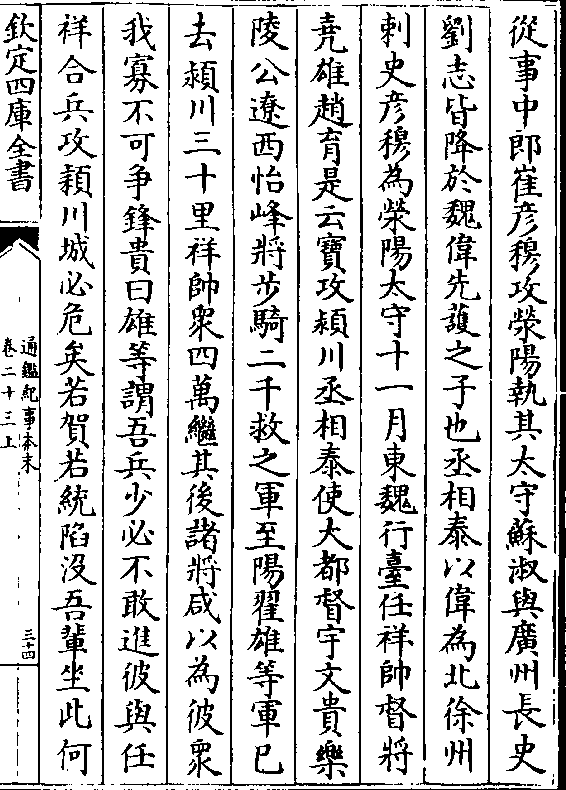 從事中郎崔彦穆攻滎陽執其太守蘇淑與廣州長史
劉志皆降於魏偉先䕶之子也丞相泰以偉為北徐州
刺史彦穆為滎陽太守十一月東魏行臺任祥帥督將
堯雄趙育是云寶攻潁川丞相泰使大都督宇文貴樂
陵公遼西怡峰將步騎二千救之軍至陽翟雄等軍已
去潁川三十里祥帥衆四萬繼其後諸將咸以為彼衆
我寡不可争鋒貴曰雄等謂吾兵少必不敢進彼與任
祥合兵攻潁川城必危矣若賀若統陷没吾輩坐此何
欽定四庫全書
通鑑紀事本末
卷二十三上
三十四